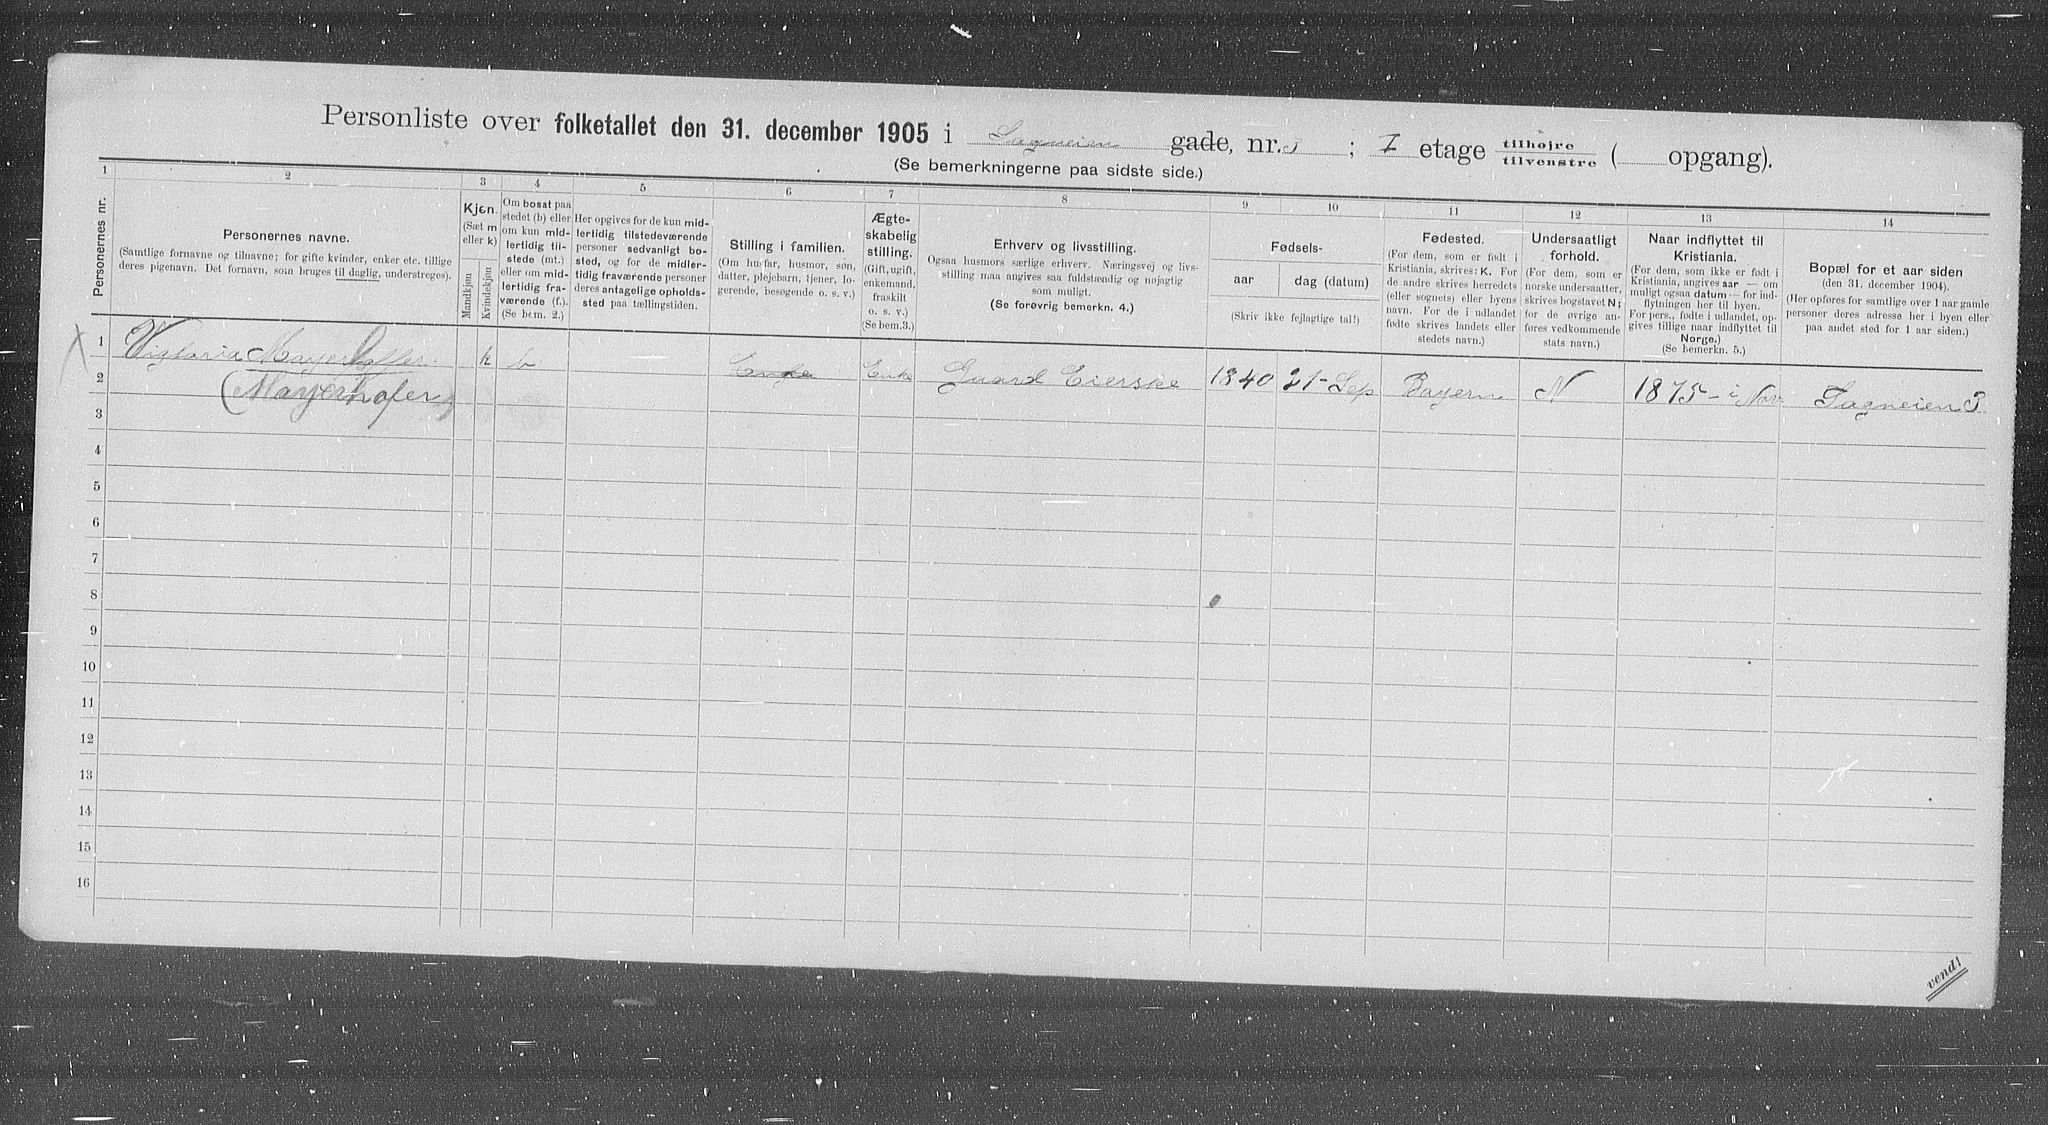 Personliste over folketallet den 31. december 1905 i Sagneien gade, nr. ; I etage tilhøjre tilvenstre ( opgang).
(Se bemerkningerne paa sidste side.)
1 2 3 4 5 6 7 8 9 10 11 12 13 14
Personernes nr.
Personernes navne.
(Samtlige fornavne og tilnavne; for gifte kvinder, enker etc. tillige
deres pigenavn. Det fornavn, som bruges til daglig, understreges).
Kjøn.
(Sæt m
eller k)
Mandkjøn
Kvindekjøn
Om bosat paa
stedet (b) eller
om kun mid-
lertidig til-
stede (mt.)
eller om mid-
lertidig fra-
værende (f.).
(Se bem. 2.)
Her opgives for de kun mid-
lertidig tilstedeværende
personer sedvanligt bo-
sted, og for de midler-
tidig fraværende personer
deres antagelige opholds-
sted paa tællingstiden.
Stilling i familien.
(Om husfar, husmor, søn,
datter, plejebarn, tjener, lo-
gerende, besøgende o. s. v.)
Ægte-
skabelig
stilling.
(Gift, ugift,
enkemand,
fraskilt
o. s. v.)
(Se bem.3.)
Erhverv og livsstilling.
Ogsaa husmors særlige erhverv. Næringsvej og livs-
stilling maa angives saa fuldstændig og nøjagtig
som muligt.
(Se forøvrig bemerkn. 4.)
Fødsels-
aar dag (datum)
(Skriv ikke fejlagtige tal!)
Fødested.
(For dem, som er født i
Kristiania, skrives: K. For
de andre skrives herredets
(eller sognets) eller byens
navn. For de i udlandet
fødte skrives landets eller
stedets navn.)
Undersaatligt
forhold.
(For dem, som er
norske undersaatter,
skrives bogstavet N;
for de øvrige an-
føres vedkommende
stats navn.)
Naar indflyttet til
Kristiania.
(For dem, som ikke er født i
Kristiania, angives aar — om
muligt ogsaa datum — for ind-
flytningen her til byen.
For pers., fødte i udlandet, op-
gives tillige naar indflyttet til
Norge.)
(Se bemerkn. 5.)
Bopæl for et aar siden
(den 31. december 1904).
(Her opføres for samtlige over 1 aar gamle
personer deres adresse her i byen eller
paa andet sted for 1 aar siden.)
1 Vigtaria Mayerhoffer. k b Enke Enke Guard Eierske 1840 21 - Sep Bayern N 1875 - i Nov Sagneien 3
2 (Mayerhofer)
3
4
5
6
7
8
9
10
11
12
13
14
15
16
vend!